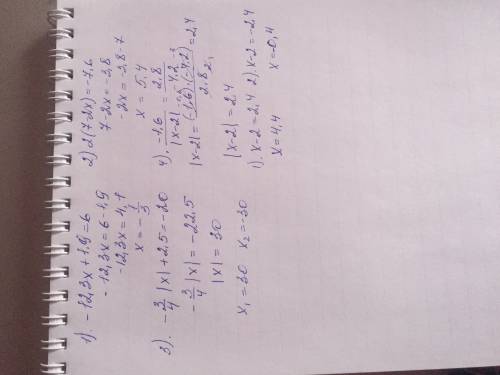 1). -12,3x + 1,9 = 6
-12,3x = 6-1,9
-12,3x = 4,1
x = -1/3
2) 2(7-2x) = -7,6
7-2x = -3,8
-2x = -3,8-7
x = 5,4
3). -3/4 |x| + 2,5 = -20
-3/4 |x| = -22,5
|x| = 30
x₁ = 30 x₂ = -30
4). -1,6/|x-2| = 2,8/-4,2
|x-2| = (-1,6)·(-4,2)/2,8 = 2,4
|x-2| = 2,4
1). x-2 = 2,4 2). x-2 = -2,4
x = 4,4 x = -0,4